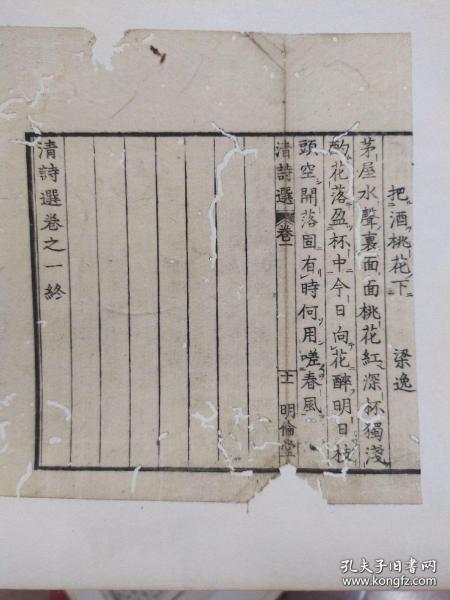 把酒桃花下　梁逸
茅屋水聲裏面面桃花紅深杯獨淺
酌花落盈杯中今日向花醉明日枝
頭空開落固有時何用嗟春風
清詩選　卷一　明倫堂
清詩選卷之一終
孔夫子旧书网
www.kongfz.com